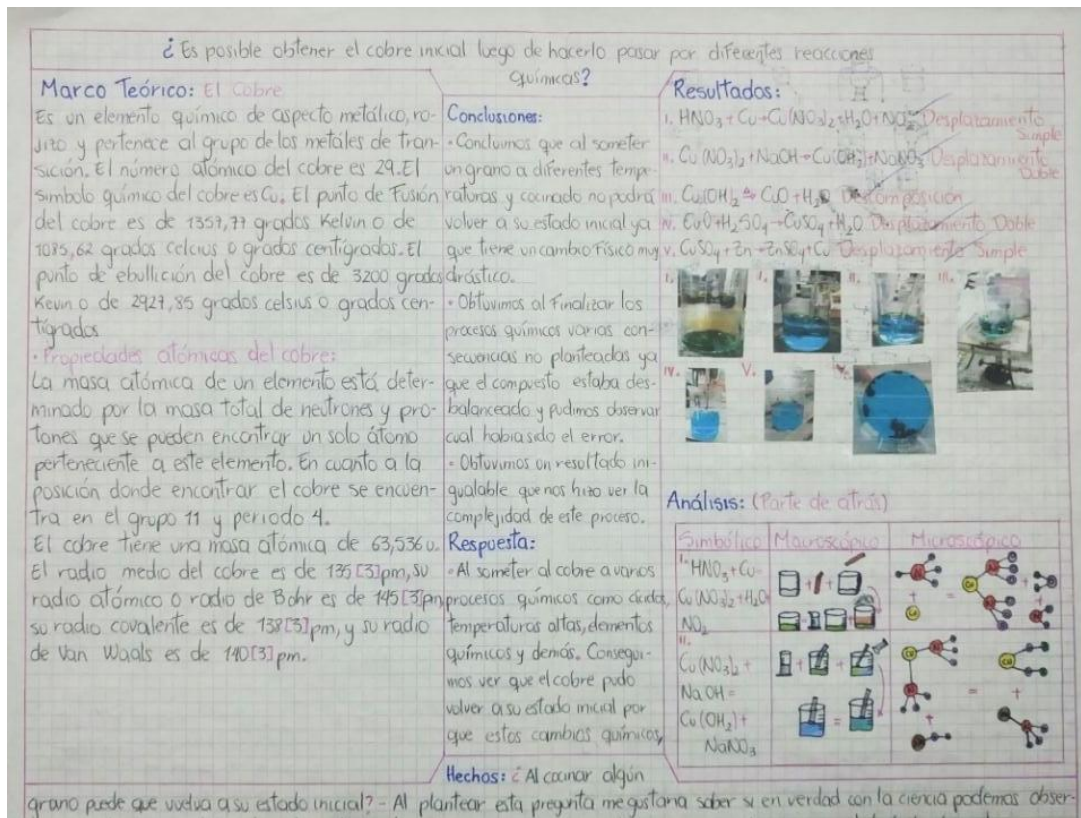 ¿Es posible obtener el cobre inicial luego de hacerlo pasar por diferentes reacciones
químicas?
Marco Teórico: El Cobre
Es un elemento químico de aspecto metálico, ro-
jizo y pertenece al grupo de los metáles de tran-
sición. El número atómico del cobre es 29. El
simbolo químico del cobre es Cu. El punto de Fusión
del cobre es de 1357,77 grados Kelvin o de
1085,62 grados celcius o grados centígrados. El
punto de ebullición del cobre es de 3200 grados
Kevin o de 2927,85 grados celsius o grados cen-
tigrados
· Propiedades atómicas del cobre:
La masa atómica de un elemento está deter-
minado por la masa total de neutrones y pro-
tones que se pueden encontrar un solo átomo
perteneciente a este elemento. En cuanto a la
posición donde encontrar el cobre se encuen-
tra en el grupo 11 y periodo 4.
El cobre tiene una masa atómica de 63,536 u.
El radio medio del cobre es de 135[3]pm, su
radio atómico o radio de Bohr es de 145[3]pm,
su radio covalente es de 138[3]pm, y su radio
de Van Waals es de 140[3]pm.
Conclusiones:
· Concluimos que al someter
un grano a diferentes tempe-
raturas y cocinado no podrá
volver a su estado inicial ya
que tiene un cambio Físico muy
drástico.
· Obtuvimos al Finalizar los
procesos químicos varias con-
secuencias no planteadas ya
que el compuesto estaba des-
balanceado y pudimos observar
cual habia sido el error.
· Obtuvimos un resultado ini-
gualable que nos hizo ver la
complejidad de este proceso.
Respuesta:
· Al someter al cobre a varios
procesos químicos como ácidos,
temperaturas altas, elementos
químicos y demás. Consegui-
mos ver que el cobre pudo
volver a su estado inicial por
que estos cambios químicos,
Resultados:
I. HNO3 + Cu → Cu(NO3)2 + H2O + NO2 Desplazamiento
Simple
II. Cu(NO3)2 + NaOH → Cu(OH2) + NaNO3 Desplazamiento
Doble
III. Cu(OH)2 → CuO + H2O Descomposición
IV. CuO + H2SO4 → CuSO4 + H2O Desplazamiento Doble
V. CuSO4 + Zn → ZnSO4 + Cu Desplazamiento Simple
I. II. III. E
IV. V.
Análisis: (Parte de atrás)
Simbólico Macroscópico Microscópico
I. HNO3 + Cu
Cu(NO3)2 + H2O
NO2
II.
Cu(NO3)2 +
NaOH =
Cu(OH2) +
NaNO3
Hechos: ¿Al cocinar algún
grano puede que vuelva a su estado inicial? - Al plantear esta pregunta me gustaria saber si en verdad con la ciencia podemos obser-